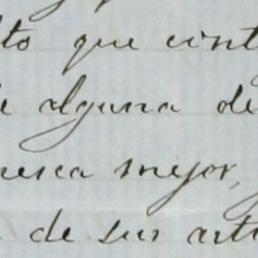 to que cont
e alguna de
resca mejor,
de sus arti